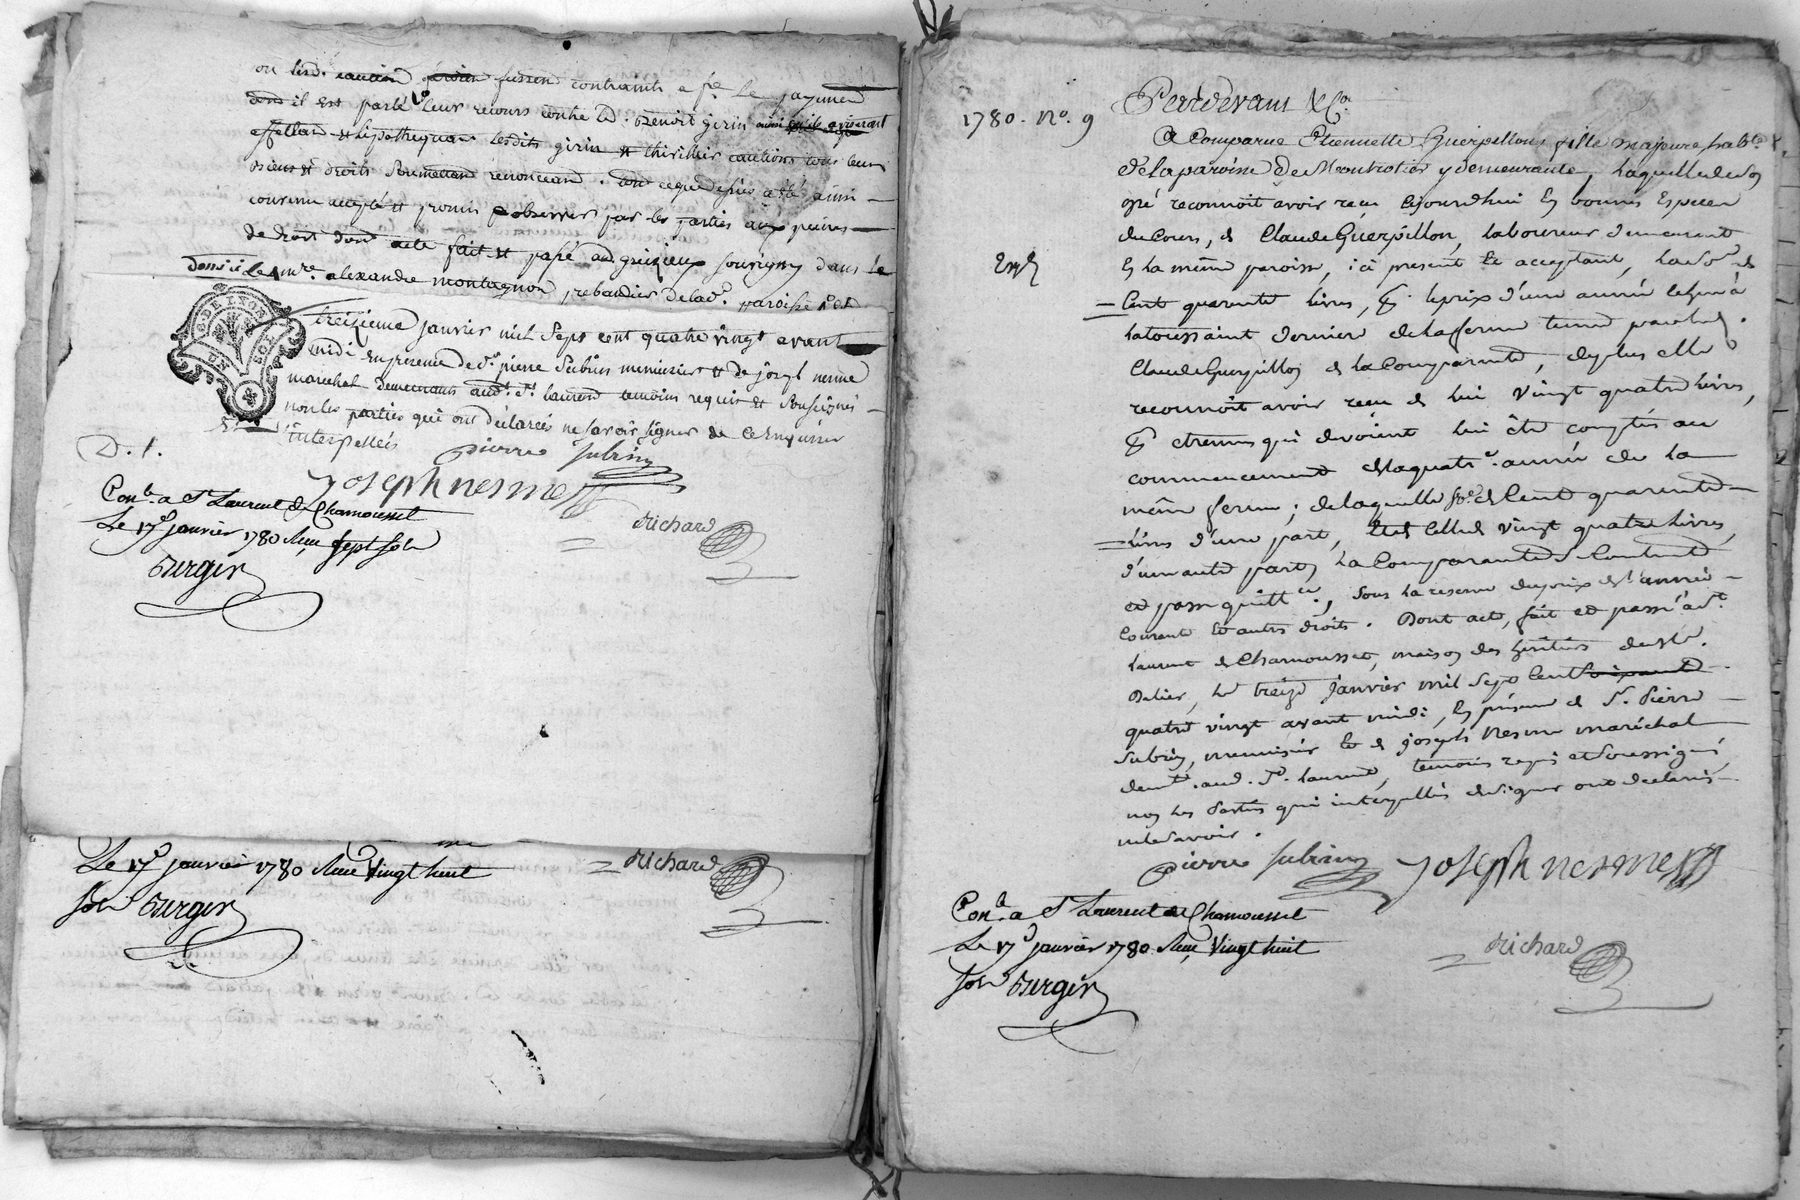 ou lesd. caution fussent contraints a fe. le payment
il est parlé leur recours contre led. Benoit girin
affectant et hipothequant lesdits girin et thivillier cautions tous leurs
biens et droits soumettant renonceant. tout ceque dessus a été ainsi
convenu accepté et promis observer par les parties aux peines
de droit dont acte fait et passé aud. grézieux souvigny dans le
domicile de mre. alexandre montagnon prebandier de lad. paroisse le
treizieme janvier mil sept cent quatre vingt avant
midi en presence de sr. pierre Subrin menuisier et de joseph nesme
marechal demeurants aud. St. laurent temoins requis et soussignés
non les parties qui ont déclarées ne savoir signer de ce enquises
et interpellées
G. DE LYON
D. 1.
pierre Subrin
Joseph nesme
Conle. a St Laurent de Chamousset
Le 17e janvier 1780 Reçu sept sols
Burgin
Richard
Le 17e janvier 1780 Reçu Vingt huit
sols Burgin
Richard
1780. No. 9
Pardevant &Ca.
A Comparue Etiennette Guerpillon fille majeure habte.
de la paroisse de Montrotier y demeurante, laquelle de son
gré reconnoit avoir recu cejourdhui en bonnes Especes
du Cours, de Claude Guerpillon, laboureur demeurant
en la même paroisse, ici present et acceptant, la some de
Cent quarente livres, pr. le prix d'une année echue à
la toussaint derniere de la ferme tenue par led.
Claude Guerpillon de la Comparante, deplus elle
reconnoit avoir recu de lui vingt quatre livres,
pr. etrennes qui devoient lui être comptés au
commencement de la quatre. année de la
même ferme; de laquelle se. de Cent quarente
livres d'une part, et de Celle de vingt quatre livres,
d'un autre part, la Comparante se Contente
et passe quittce., sous la reserve du prix de l'année
Courante et autres droits. Dont acte, fait et passé à St.
laurent de Chamousset, maison des héritiers de
Dalier, le treize janvier mil sept Cent soixante
quatre vingt avant midi, en présence de Sr. Pierre
Subrin, menuisier et de joseph Nesme maréchal
demts. aud. St. laurent, temoins requis et Soussignés
non les Parties qui interpellées de signer ont declarés
ne le savoir.
pierre Subrin
Joseph nesme
Conle. a St Laurent de Chamousset
Le 17e janvier 1780 Reçu Vingt huit
sols Burgin
Richard